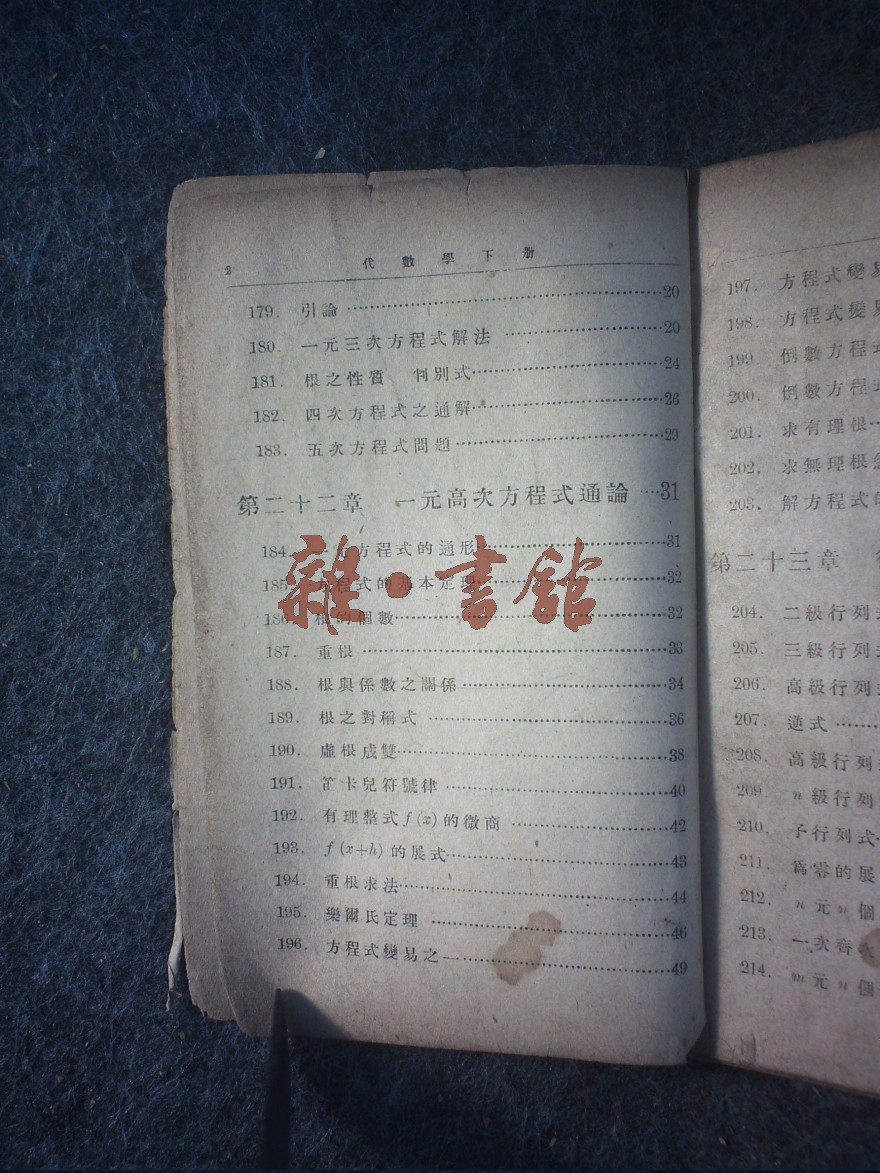 2 代數學下册
179. 引論 ……20
180. 一元三次方程式解法 ……20
181. 根之性質 判別式……24
182. 四次方程式之通解……26
183. 五次方程式問題……29
第二十二章 一元高次方程式通論…31
184. 一元方程式的通形……31
185. 方程式的基本定理……32
186. 根的個數……32
187. 重根……33
188. 根與係數之關係……34
189. 根之對稱式 ……36
190. 虛根成雙……38
191. 笛卡兒符號律……40
192. 有理整式 f(x) 的微商 ……42
193. f(x+h) 的展式……43
194. 重根求法……44
195. 樂爾氏定理 ……46
196. 方程式變易之一……49
197. 方程式變易
198. 方程式變
199. 倒數方程式
200. 倒數方程式
201. 求有理根…
202. 求無理根
203. 解方程式的
第二十三章
204. 二級行列式
205. 三級行列式
206. 高級行列式
207. 逆式……
208. 高級行列
209. n 級行列
210. 子行列式…
211. 爲零的展
212. n 元 n 個
213. 一次齊次
214. m 元 n 個
雜·書館